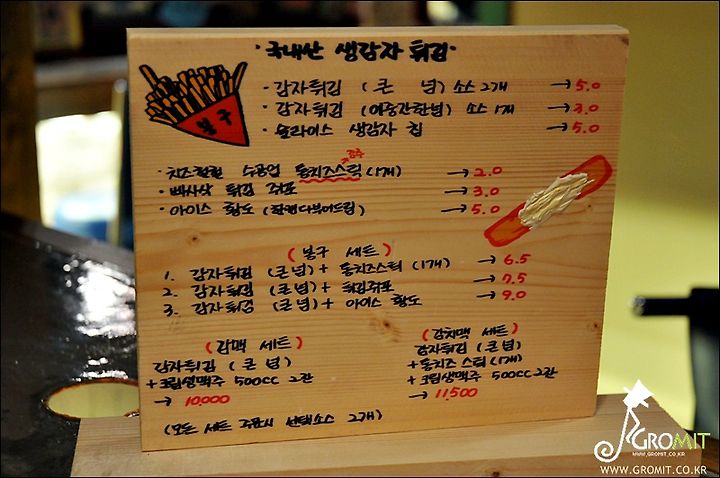 · 국내산 생감자 튀김 ·
봉구
· 감자튀김 (큰 넘) 소스 2개 → 5.0
· 감자튀김 (어중간한넘) 소스 1개 → 3.0
· 슬라이스 생감자 칩 → 5.0
강추
· 치즈촬촬 수공업 통치즈스틱 (1개) → 2.0
· 빠사삭 튀김 쥐포 → 3.0
· 아이스 황도 (한캔다부어드림) → 5.0
( 봉구 세트 )
1. 감자튀김 (큰 넘) + 통치즈스틱 (1개) → 6.5
2. 감자튀김 (큰 넘) + 튀김쥐포 → 7.5
3. 감자튀김 (큰 넘) + 아이스 황도 → 9.0
(감맥 세트)
감자튀김 (큰 넘)
+ 크림생맥주 500cc 2잔
→ 10,000
(감치맥 세트)
감자튀김 (큰 넘)
+ 통치즈 스틱 (1개)
+ 크림생맥주 500cc 2잔
→ 11,500
(모든 세트 주문시 선택소스 2개)
GROMIT
WWW.GROMIT.CO.KR
WWW.GROMIT.CO.KR